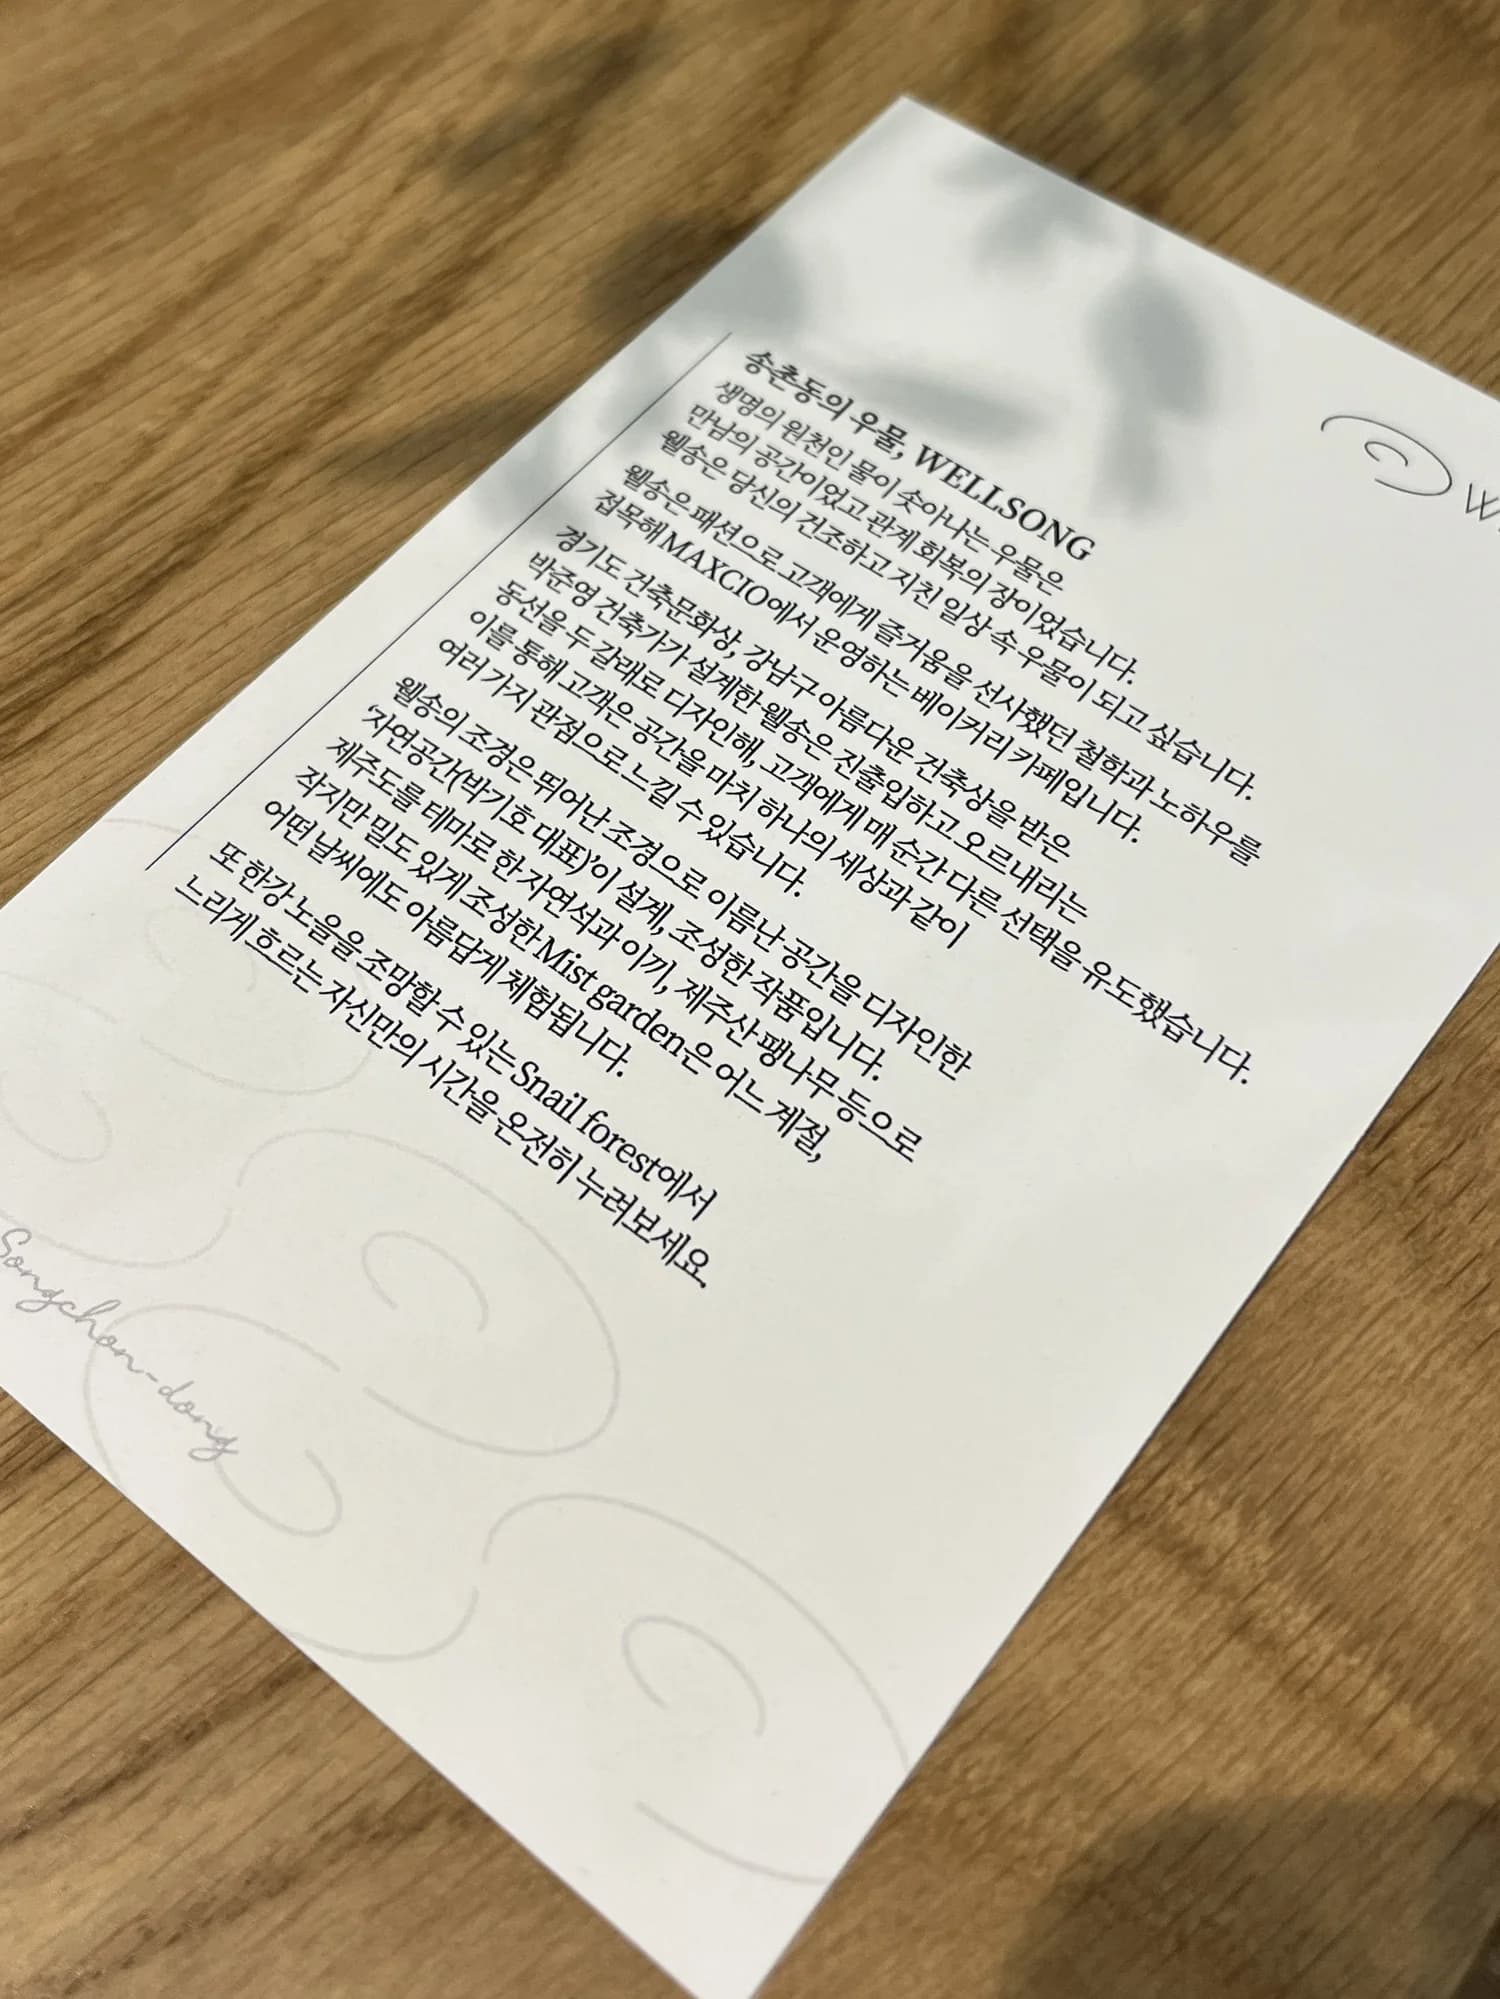 송촌동의 우물, WELLSONG
생명의 원천인 물이 솟아나는 우물은
만남의 공간이었고 관계 회복의 장이었습니다.
웰송은 당신의 건조하고 지친 일상 속 우물이 되고 싶습니다.
웰송은 패션으로 고객에게 즐거움을 선사했던 철학과 노하우를
접목해 MAXCIO에서 운영하는 베이커리 카페입니다.
경기도 건축문화상, 강남구 아름다운 건축상을 받은
박준영 건축가가 설계한 웰송은 진출입하고 오르내리는
동선을 두 갈래로 디자인해, 고객에게 매 순간 다른 선택을 유도했습니다.
이를 통해 고객은 공간을 마치 하나의 세상과 같이
여러 가지 관점으로 느낄 수 있습니다.
웰송의 조경은 뛰어난 조경으로 이름난 공간을 디자인한
‘자연공간(박기호 대표)’이 설계, 조성한 작품입니다.
제주도를 테마로 한 자연석과 이끼, 제주산 팽나무 등으로
작지만 밀도 있게 조성한 Mist garden은 어느 계절,
어떤 날씨에도 아름답게 체험됩니다.
또 한강 노을을 조망할 수 있는 Snail forest에서
느리게 흐르는 자신만의 시간을 온전히 누려보세요.
Songchon-dong